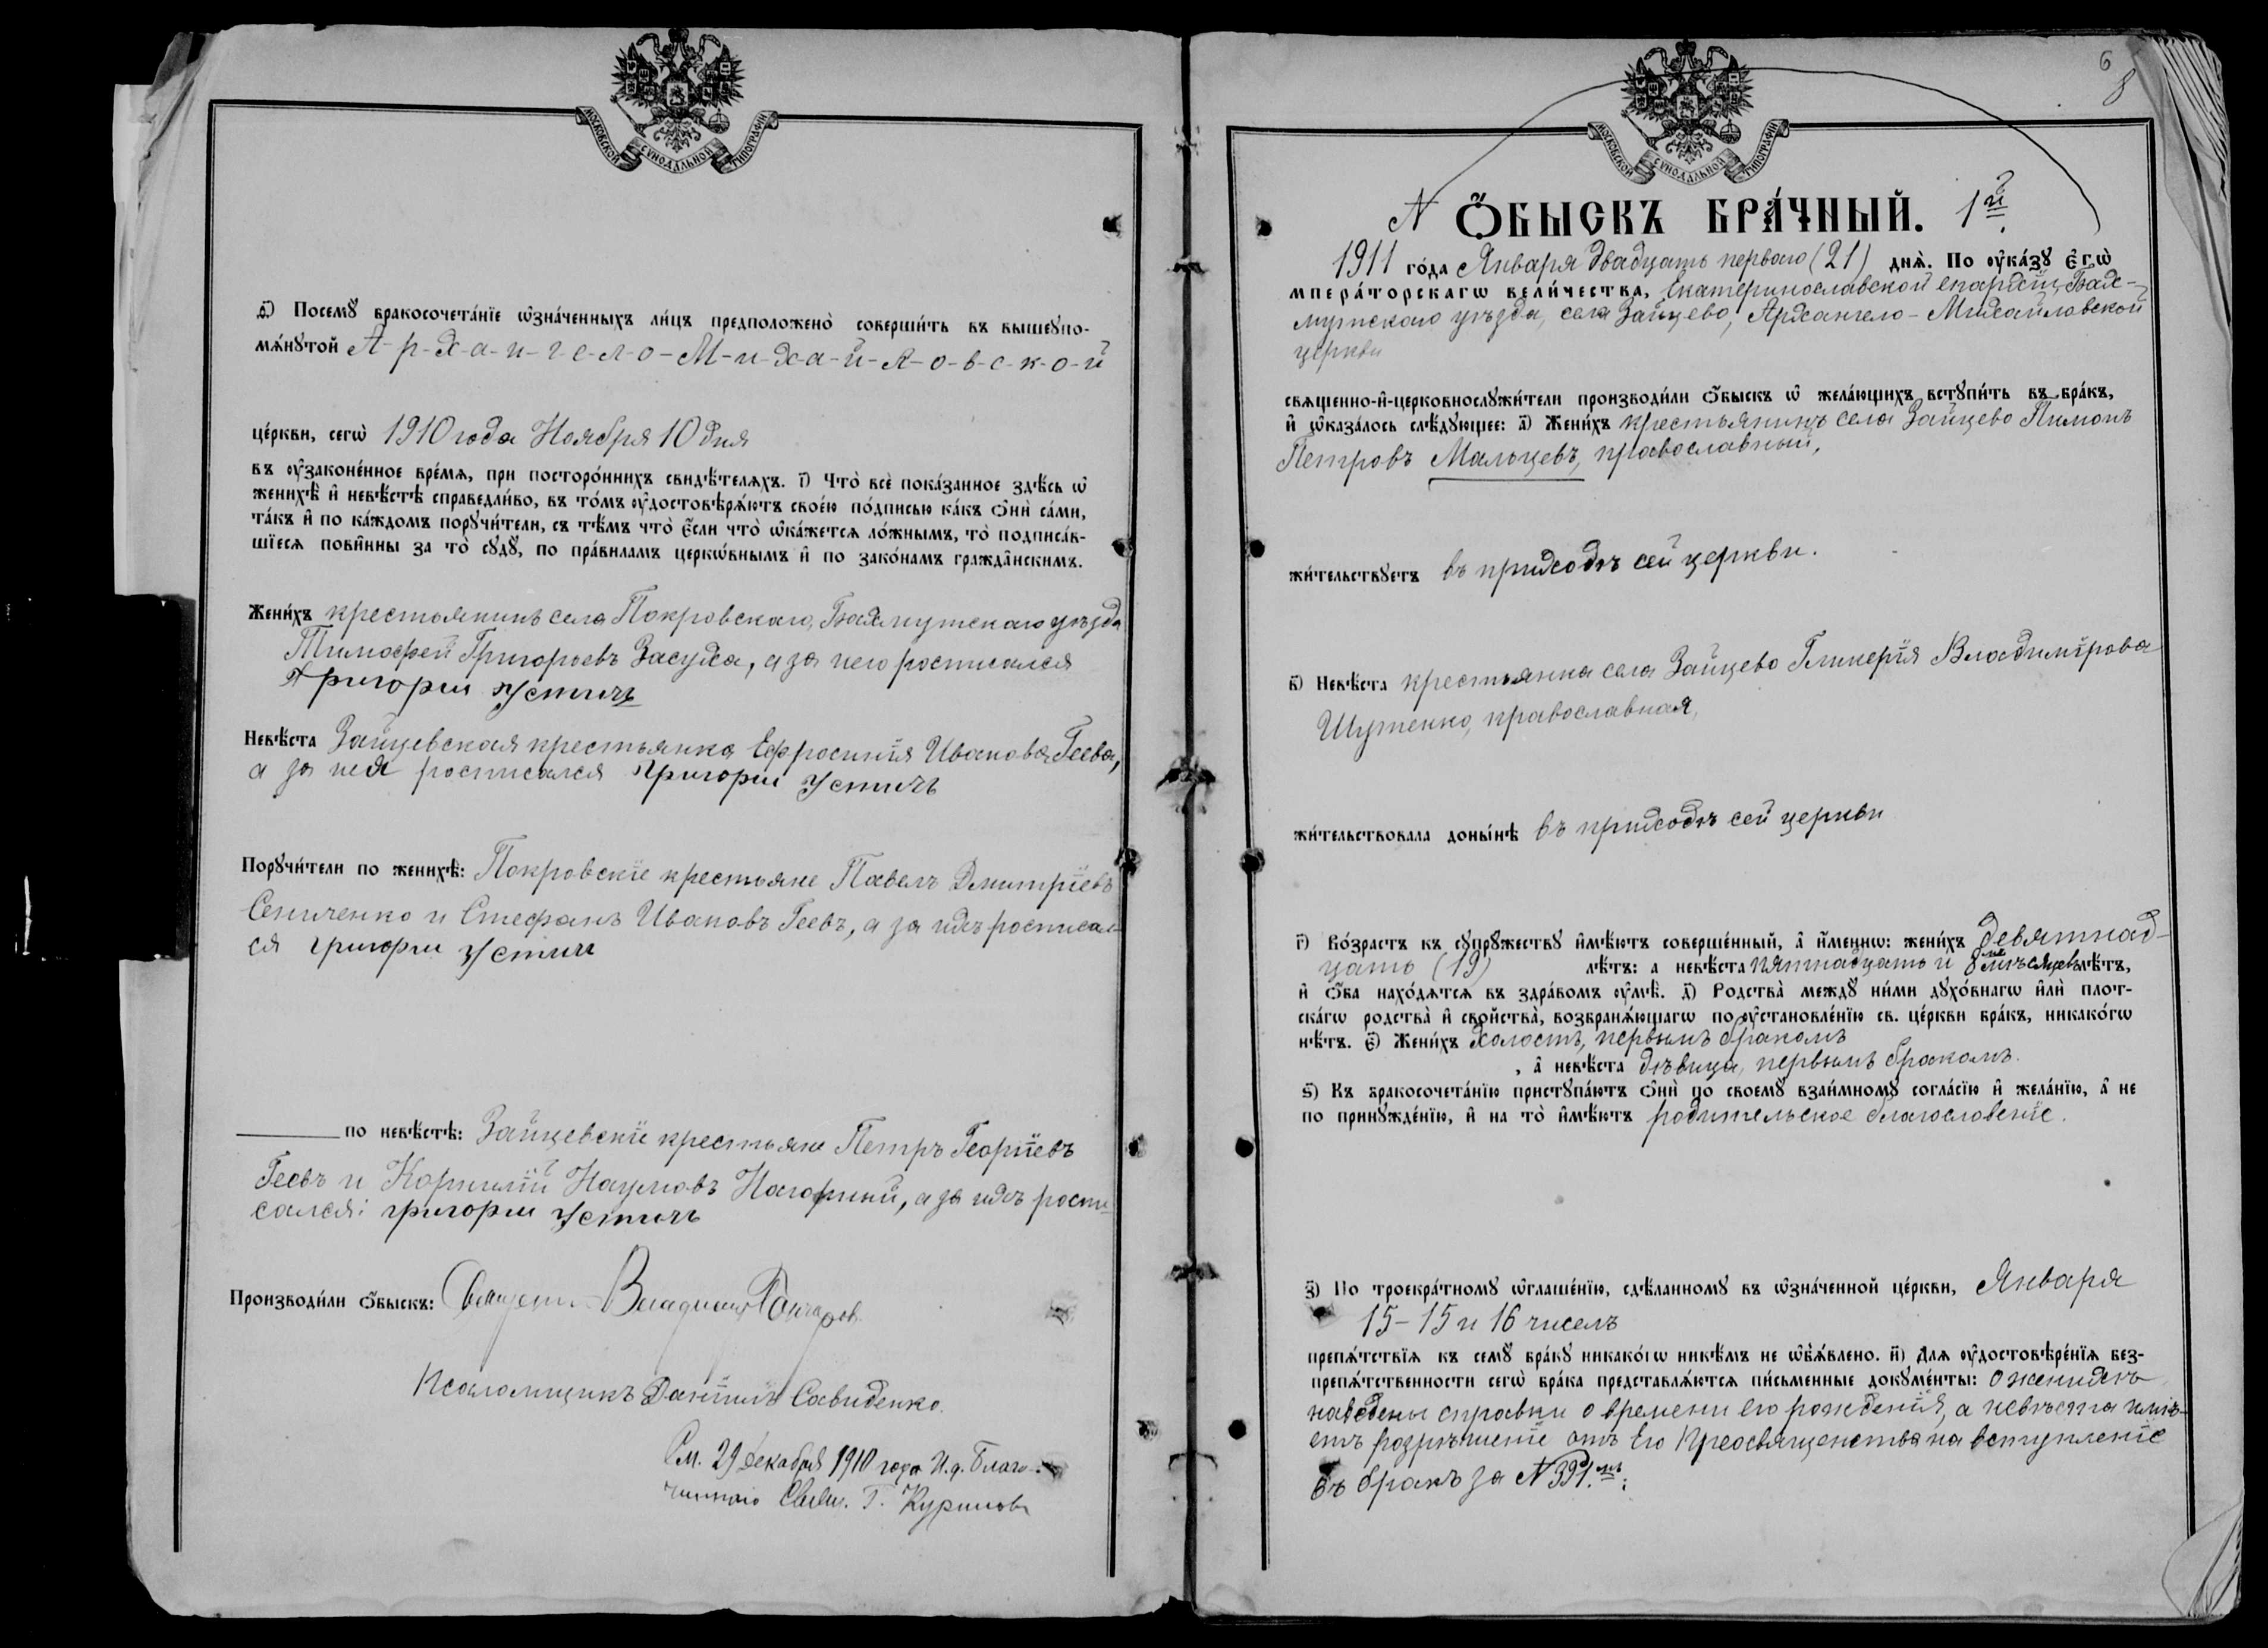 МОСКОВСКОЙ СѴНОДАЛЬНОЙ ТИПОГРАФІИ
д҃) Посемꙋ̀ бракосочета́нїе ѡ҆зна́ченныхъ ли́цъ предположено̀ соверши́ть въ вышеупо-
мѧ́нꙋтой А-р-х-а-н-г-е-л-о-М-и-х-а-й-л-о-в-с-к-о-й
це́ркви, сегѡ̀ 1910 года Ноября 10 дня
въ ᲂу҆законе́нное вре́мѧ, при посторо́ннихъ свидѣ́телѧхъ. і҃) Что̀ всѐ пока́занное здѣ́сь ѡ҆
женихѣ̀ и҆ невѣ́стѣ справедли́во, въ то́мъ ᲂу҆достовѣрѧ́ютъ свое́ю по́дписью ка́къ ѻ҆нѝ са́ми,
та́къ и҆ по ка́ждомъ порꙋчи́тели, съ тѣ́мъ что̀ є҆́сли что̀ ѡ҆ка́жетсѧ ло́жнымъ, то̀ подписа́в-
шїесѧ пови́нны за то̀ сꙋдꙋ̀, по пра́виламъ церкѡ́внымъ и҆ по зако́намъ гражда̂нскимъ.
Жени́хъ крестьянинъ села Покровскаго, Бахмутскаго уѣзда
Тимофей Григорьевъ Засуха, а за него росписался
Григории Устичъ
Невѣ́ста Зайцевская крестьянка Ефросинія Иванова Геева,
а за нея росписался Григории Устичъ
Порꙋчи́тели по женихѣ̀: Покровскіе крестьяне Павелъ Дмитріевъ
Сениченко и Стефанъ Ивановъ Геевъ, а за ихъ росписал-
ся григории Устичъ
по невѣ́стѣ: Зайцевскіе крестьяне Петръ Георгіевъ
Геевъ и Корнилій Наумовъ Нагорный, а за ихъ роспи-
сался: григории Устичъ
Производи́ли ѻ҆́быскъ: Священ. Владимир Гончаров
Псаломщикъ Даніилъ Савиденко.
См. 29 декабря 1910 года И. д. Благо-
чиннаго Свящ. Г. Куримов
6
8
МОСКОВСКОЙ СѴНОДАЛЬНОЙ ТИПОГРАФІИ
N Ѻ҆́БЫСКЪ БРА́ЧНЫЙ. 1й
1911 го́да Января двадцать перваго (21) днѧ̀. По ᲂу҆ка́зꙋ Є҆гѡ̀
мпера́торскагѡ вели́чества, Екатеринославской епархіи, Бах-
мутскаго уѣзда, села Зайцево, Архангело-Михайловской
церкви
свѧще́нно-и҆-церковнослꙋжи́тели производи́ли ѻ҆́быскъ ѡ҆ жела́ющихъ встꙋпи́ть въ бра́къ,
и҆ ѡ҆каза́лось слѣ́дꙋющее: а҃) Жени́хъ крестьянинъ села Зайцево Пимонъ
Петровъ Мальцевъ, православный,
жи́тельствꙋетъ въ приходѣ сей церкви.
в҃) Невѣ́ста крестьянка села Зайцево Гликерія Владимірова
Шутенко, православная,
жи́тельствовала доны́нѣ въ приходѣ сей церкви
г҃) Во́зрастъ къ сꙋпрꙋ́жествꙋ и҆мѣ́ютъ соверше́нный, а҆ и҆́меннѡ: жени́хъ девятнад-
цать (19) лѣ́тъ: а невѣ́ста пятнадцать и 8 мѣсяцевъ лѣ́тъ,
и҆ ѻ҆́ба нахо́дѧтсѧ въ здра́вомъ ᲂу҆мѣ̀. д҃) Родства̀ междꙋ̀ ни́ми дꙋхо́внагѡ и҆лѝ плот-
ска́гѡ родства̀ и҆ свойства̀, возбранѧ́ющагѡ по ᲂу҆становле́нїю св. це́ркви бра́къ, никако́гѡ
нѣ́тъ. є҃) Жени́хъ холостъ, первымъ бракомъ
, а҆ невѣ́ста дѣвица, первымъ бракомъ.
ѕ҃) Къ бракосочета́нїю пристꙋпа́ютъ ѻ҆нѝ по своемꙋ̀ взаи́мномꙋ согла́сїю и҆ жела́нїю, а҆ не
по принꙋжде́нїю, и҆ на то̀ и҆мѣ́ютъ родительское благословеніе.
з҃) По троекра́тномꙋ ѡ҆глаше́нїю, сдѣ́ланномꙋ въ ѡ҆зна́ченной це́ркви, Января
15-15 и 16 чиселъ
препѧ́тствїѧ къ семꙋ̀ бра́кꙋ никако́гѡ никѣ́мъ не ѡ҆б̾ѧ́влено. и҃) Длѧ ᲂу҆достовѣре́нїѧ без-
препѧ́тственности сегѡ̀ бра́ка представлѧ́ютсѧ пи́сьменные докꙋме́нты: о женихѣ
наведены справки о времени его рожденія, а невѣста имѣ-
етъ разрѣшеніе отъ Его Преосвященства на вступленіе
въ бракъ за N 391.мъ: